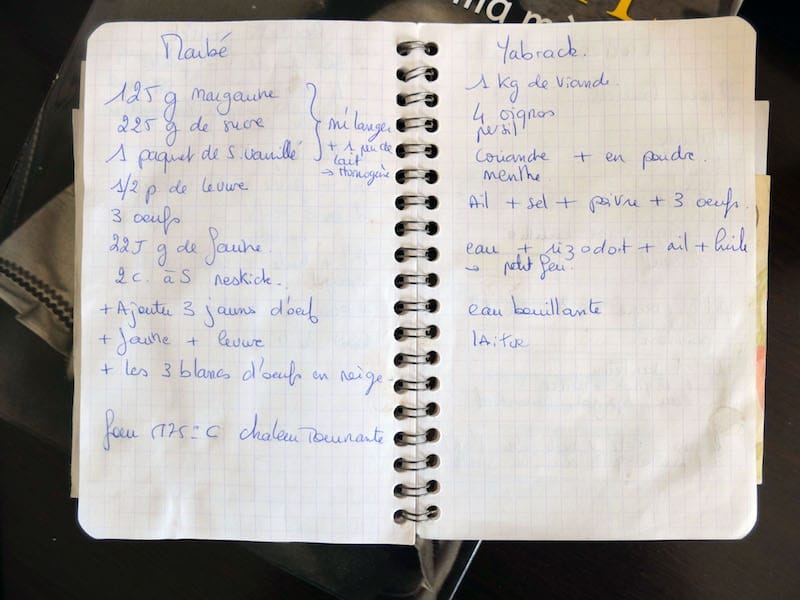 Marbé
125 g margarine
225 g de sucre
1 paquet de S. vanillé
mélanger
+ 1 peu de
lait
→ Homogène
1/2 p de levure
3 oeufs
225 g de farine.
2 c. à S neskick.
+ Ajouter 3 jauns d'oeuf
+ farine + levure
+ Les 3 blancs d'oeufs en neige.
four 175°C chaleur Tournante
Yabrack.
1 Kg de viande.
4 oignos
persil
Coriande + en poudre.
menthe.
Ail + sel + poivre + 3 oeufs.
eau + riz + ail + huile
→ petit feu.
eau bouillante
lAitue